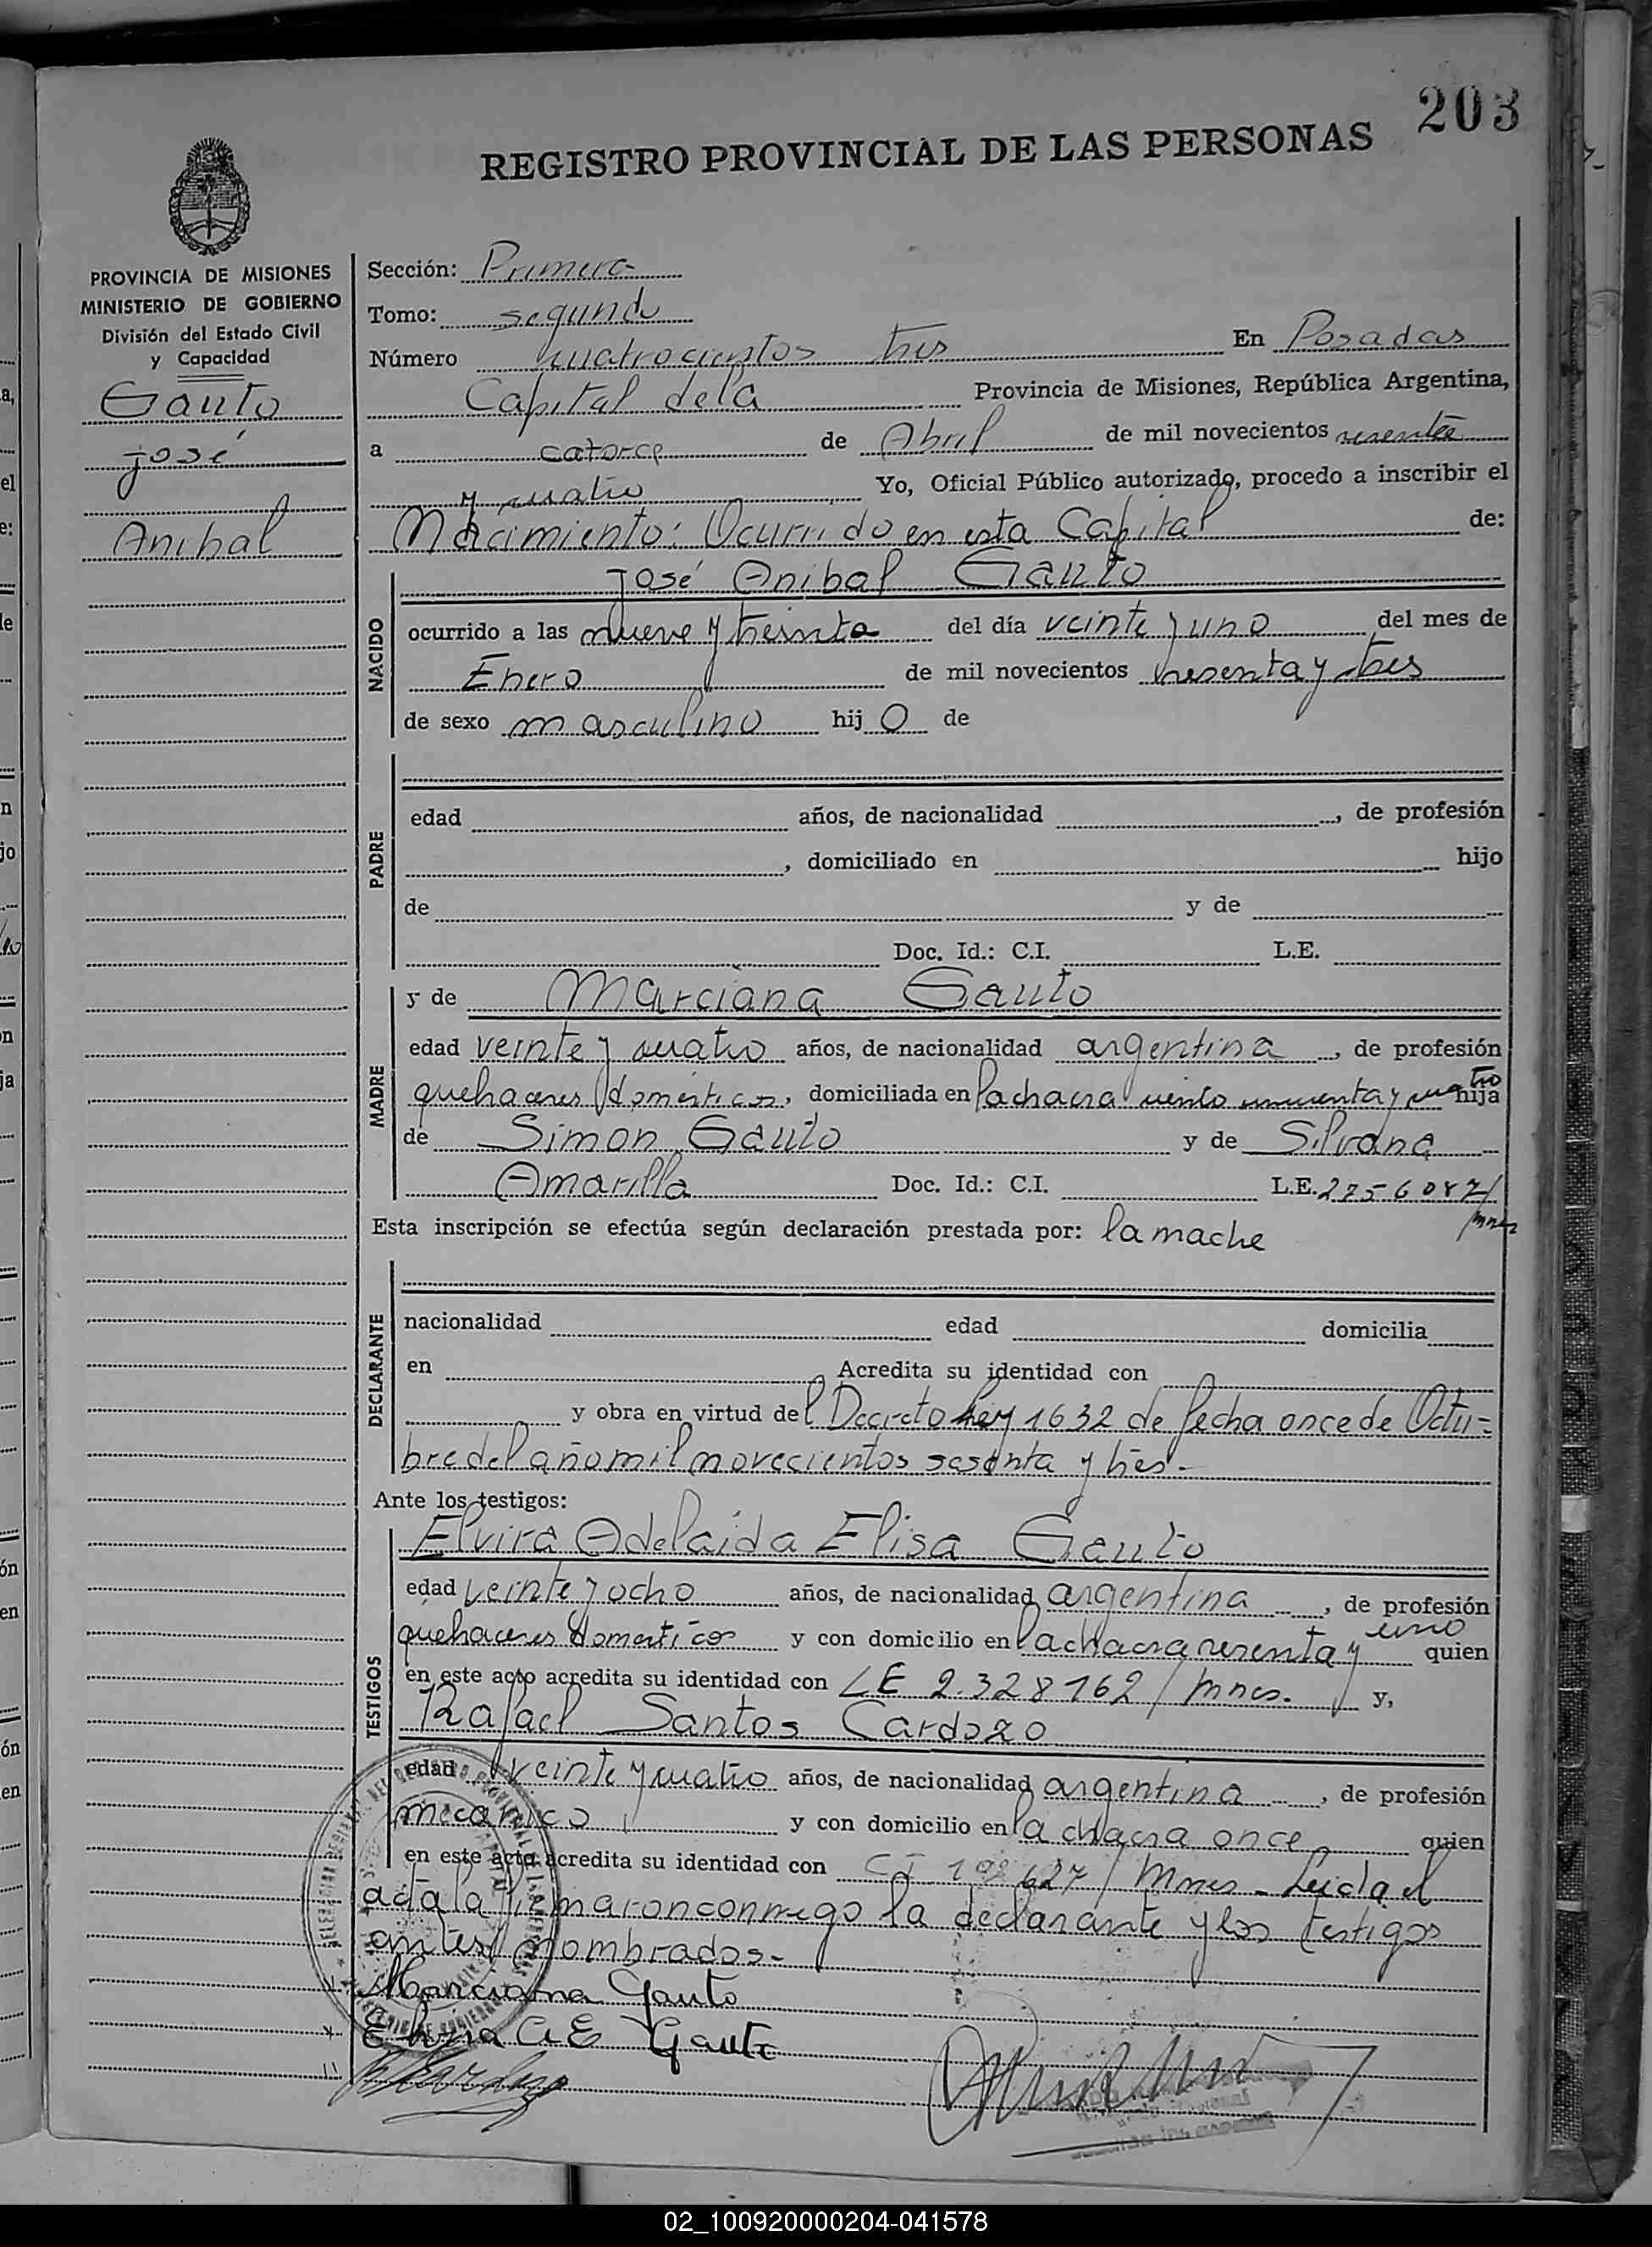 203
REGISTRO PROVINCIAL DE LAS PERSONAS
PROVINCIA DE MISIONES
MINISTERIO DE GOBIERNO
División del Estado Civil
y Capacidad
Gauto
José
Anibal
Sección: Primera
Tomo: segundo
Número cuatrocientos tres En Posadas
Capital dela Provincia de Misiones, República Argentina,
a catorce de Abril de mil novecientos sesenta
y cuatro Yo, Oficial Público autorizado, procedo a inscribir el
Nacimiento: Ocurrido en esta Capital de:
NACIDO
José Anibal Gauto
ocurrido a las nueve y treinta del día veinte y uno del mes de
Enero de mil novecientos sesenta y tres
de sexo masculino hijo de
PADRE
edad años, de nacionalidad , de profesión
, domiciliado en hijo
de y de
Doc. Id.: C.I. L.E.
MADRE
y de Marciana Gauto
edad veinte y cuatro años, de nacionalidad argentina, de profesión
quehaceres domésticos, domiciliada en la chacra ciento cincuenta y cuatro hija
de Simon Gauto y de Silvana
Amarilla Doc. Id.: C.I. L.E. 2756087/
mnes
Esta inscripción se efectúa según declaración prestada por: la madre
DECLARANTE
nacionalidad edad domicilia
en Acredita su identidad con
y obra en virtud del Decreto Ley 1632 de fecha once de Octu=
bre del año mil novecientos sesenta y tres.-
Ante los testigos:
TESTIGOS
Elvira Adelaida Elisa Gauto
edad veinte y ocho años, de nacionalidad argentina, de profesión
quehaceres domesticos y con domicilio en la chacra sesenta y uno quien
en este acto acredita su identidad con LE 2.328162/mnes. y,
Rafael Santos Cardozo
edad veinte y cuatro años, de nacionalidad argentina, de profesión
mecanico y con domicilio en la chacra once quien
en este acto acredita su identidad con CI 198627/Mnes - Leida el
acta la firmaron conmigo la declarante y los testigos
antes nombrados.-
Marciana Gauto
Elvira A E Gauto
02_100920000204-041578